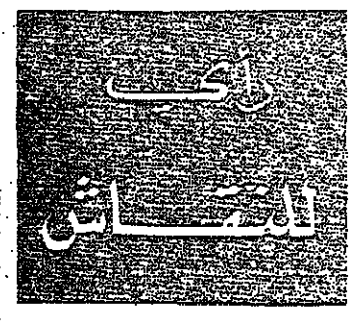 رأي
للنقاش